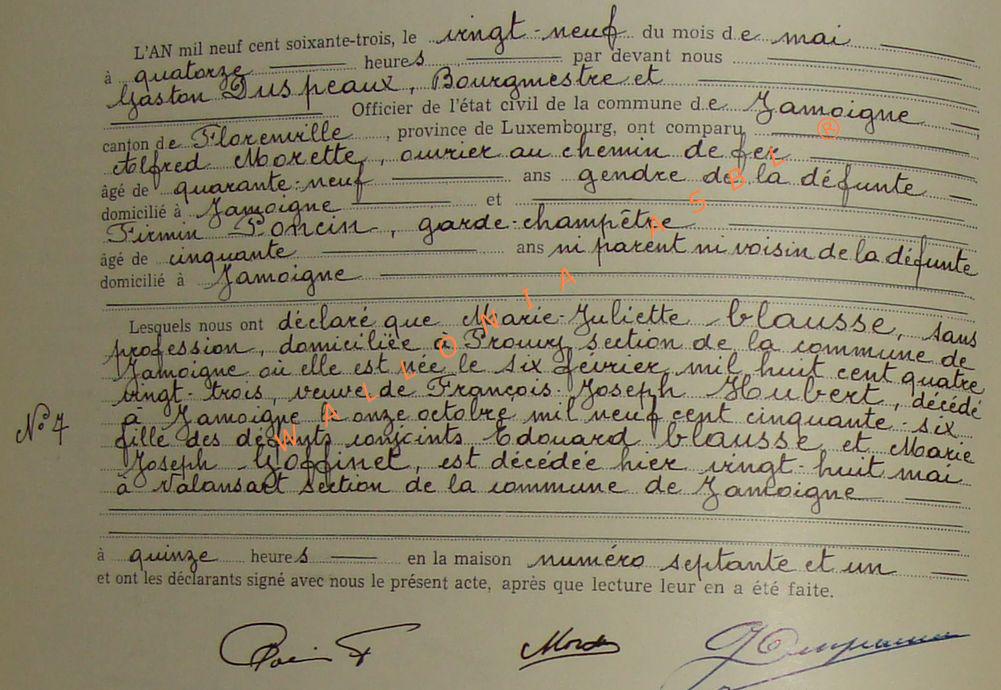 L'AN mil neuf cent soixante-trois, le vingt-neuf du mois de mai
à quatorze heures par devant nous
Gaston Duspeaux, Bourgmestre et
Officier de l'état civil de la commune de Jamoigne
canton de Florenville, province de Luxembourg, ont comparu
Alfred Morette, ouvrier au chemin de fer
âgé de quarante-neuf ans gendre de la défunte
domicilié à Jamoigne et
Firmin Poncin, garde-champêtre
âgé de cinquante ans ni parent ni voisin de la défunte
domicilié à Jamoigne
Lesquels nous ont déclaré que Marie-Juliette Clausse, sans
profession, domiciliée à Prouvy section de la commune de
Jamoigne où elle est née le six février mil huit cent quatre
vingt-trois, veuve de François-Joseph Hubert, décédé
à Jamoigne le onze octobre mil neuf cent cinquante-six
N° 7
fille des défunts conjoints Edouard Clausse et Marie
Joseph Goffinet, est décédée hier vingt-huit mai
à Valansart section de la commune de Jamoigne
à quinze heures en la maison numéro septante et un
et ont les déclarants signé avec nous le présent acte, après que lecture leur en a été faite.
WALLONIA ASBL ®